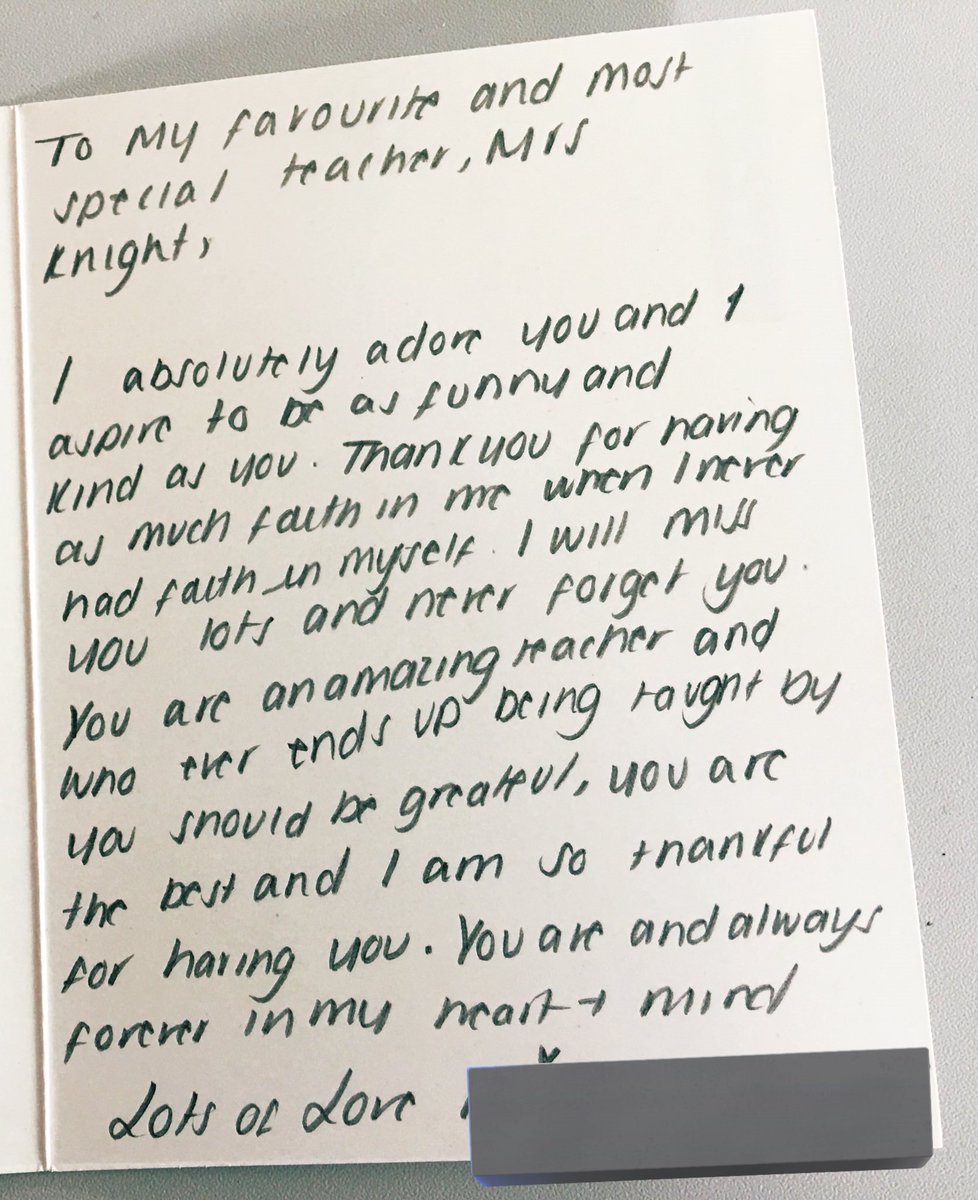 To My favourite and most
special teacher, Mrs
Knight,
I absolutely adore you and I
aspire to be as funny and
kind as you. Thank you for having
as much faith in me when I never
had faith in myself. I will miss
you lots and never forget you.
You are an amazing teacher and
who ever ends up being taught by
you should be grateful, you are
the best and I am so thankful
for having you. You are and always
forever in my heart + mind
Lots of Love